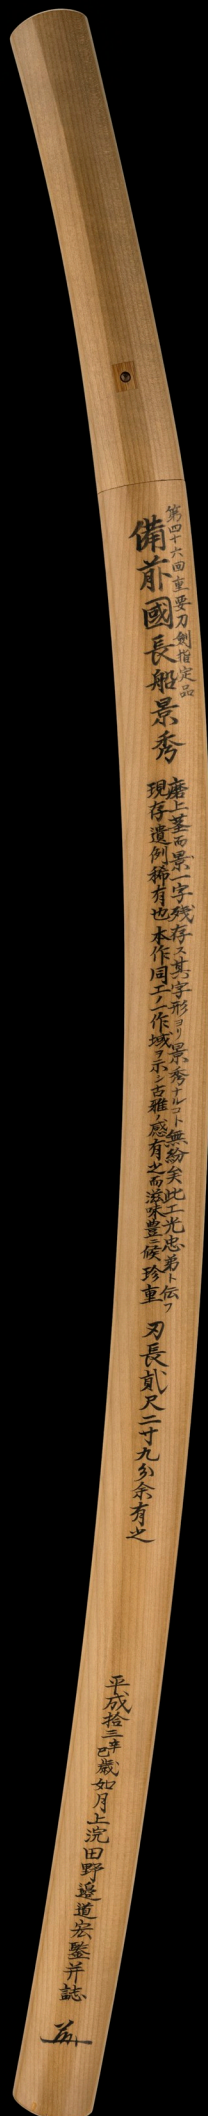 第四十六回重要刀剣指定品
備前國長船景秀
磨上茎而景一字残存ス其字形ヨリ景秀ナルコト無紛矣此工光忠弟ト伝フ
現存遺例稀有也本作同工ノ一作域ヲ示シ古雅ノ感有之而滋味豊ニ候珍重
刃長貮尺二寸九分余有之
平成拾三辛巳歳如月上浣田野邉道宏鑒并誌